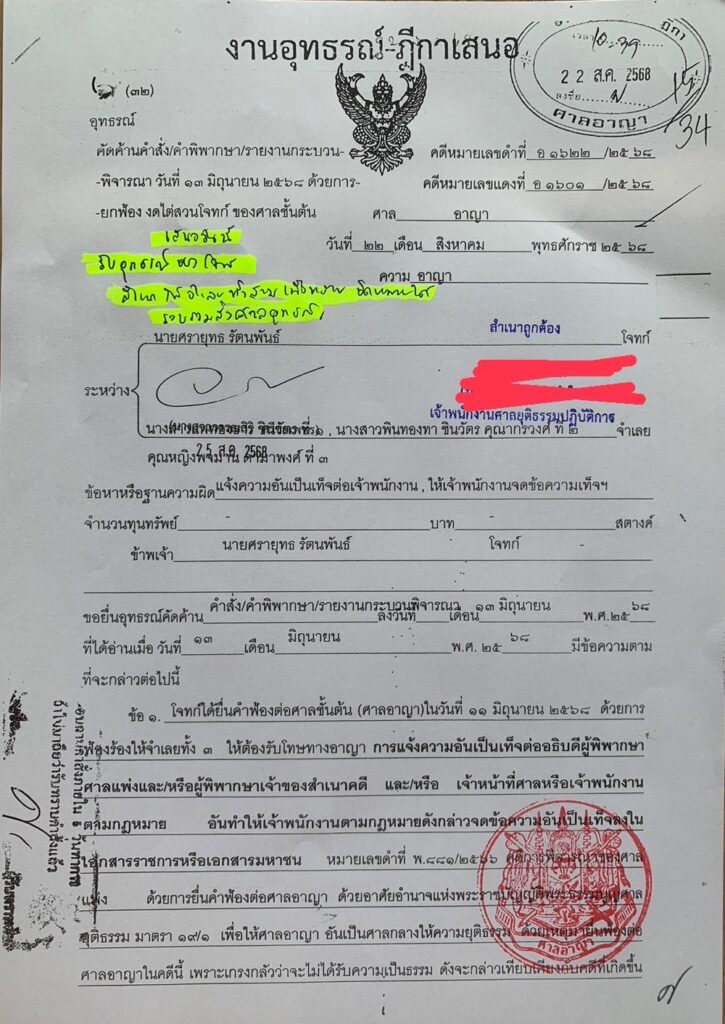 งานอุทธรณ์-ฎีกาเสนอ
10.39
22 ส.ค. 2568
ลงชื่อ
ศาลอาญา
34
(๓๒)
อุทธรณ์
คัดค้านคำสั่ง/คำพิพากษา/รายงานกระบวน- คดีหมายเลขดำที่ อ ๑๖๒๒ /๒๕ ๖๘
-พิจารณา วันที่ ๑๓ มิถุนายน ๒๕๖๘ ด้วยการ- คดีหมายเลขแดงที่ อ ๑๖๐๑ /๒๕ ๖๘
-ยกฟ้อง งดไต่สวนโจทก์ ของศาลชั้นต้น ศาล อาญา
วันที่ ๒๒ เดือน สิงหาคม พุทธศักราช ๒๕ ๖๘
รับอุทธรณ์ของโจทก์
ความ อาญา
นายศรายุทธ รัตนพันธ์ สำเนาถูกต้อง โจทก์
ระหว่าง
เจ้าพนักงานศาลยุติธรรมปฏิบัติการ
ที่ ๑ , นางสาวพินทองทา ชินวัตร คุณากรวงศ์ ที่ ๒ จำเลย
25 ส.ค. 2568
คุณหญิงพจมาน ดามาพงศ์ ที่ ๓
ข้อหาหรือฐานความผิด แจ้งความอันเป็นเท็จต่อเจ้าพนักงาน , ให้เจ้าพนักงานจดข้อความเท็จฯ
จำนวนทุนทรัพย์ - บาท - สตางค์
ข้าพเจ้า นายศรายุทธ รัตนพันธ์ โจทก์
ขอยื่นอุทธรณ์คัดค้าน คำสั่ง/คำพิพากษา/รายงานกระบวนพิจารณา ลงวันที่ ๑๓ มิถุนายน เดือน พ.ศ.๒๕ ๖๘
ที่ได้อ่านเมื่อ วันที่ ๑๓ เดือน มิถุนายน พ.ศ. ๒๕ ๖๘ มีข้อความตาม
ที่จะกล่าวต่อไปนี้
ข้อ ๑. โจทก์ได้ยื่นคำฟ้องต่อศาลชั้นต้น (ศาลอาญา)ในวันที่ ๑๑ มิถุนายน ๒๕๖๘ ด้วยการ
ฟ้องร้องให้จำเลยทั้ง ๓ ให้ต้องรับโทษทางอาญา การแจ้งความอันเป็นเท็จต่ออธิบดีผู้พิพากษา
ศาลแพ่งและ/หรือผู้พิพากษาเจ้าของสำเนาคดี และ/หรือ เจ้าหน้าที่ศาลหรือเจ้าพนักงาน
ตามกฎหมาย อันทำให้เจ้าพนักงานตามกฎหมายดังกล่าวจดข้อความอันเป็นเท็จลงใน
เอกสารราชการหรือเอกสารมหาชน หมายเลขดำที่ พ.๘๘๑/๒๕๖๖ คดีการพิจารณาของศาล
แพ่ง ด้วยการยื่นคำฟ้องต่อศาลอาญา ด้วยอาศัยอำนาจแห่งพระราชบัญญัติพระธรรมนูญศาล
ยุติธรรม มาตรา ๑๙/๑ เพื่อให้ศาลอาญา อันเป็นศาลกลางให้ความยุติธรรม ด้วยเหตุมายื่นฟ้องต่อ
ศาลอาญาในคดีนี้ เพราะเกรงกลัวว่าจะไม่ได้รับความเป็นธรรม ดังจะกล่าวเทียบเคียงกับคดีที่เกิดขึ้น
ศาลอาญา